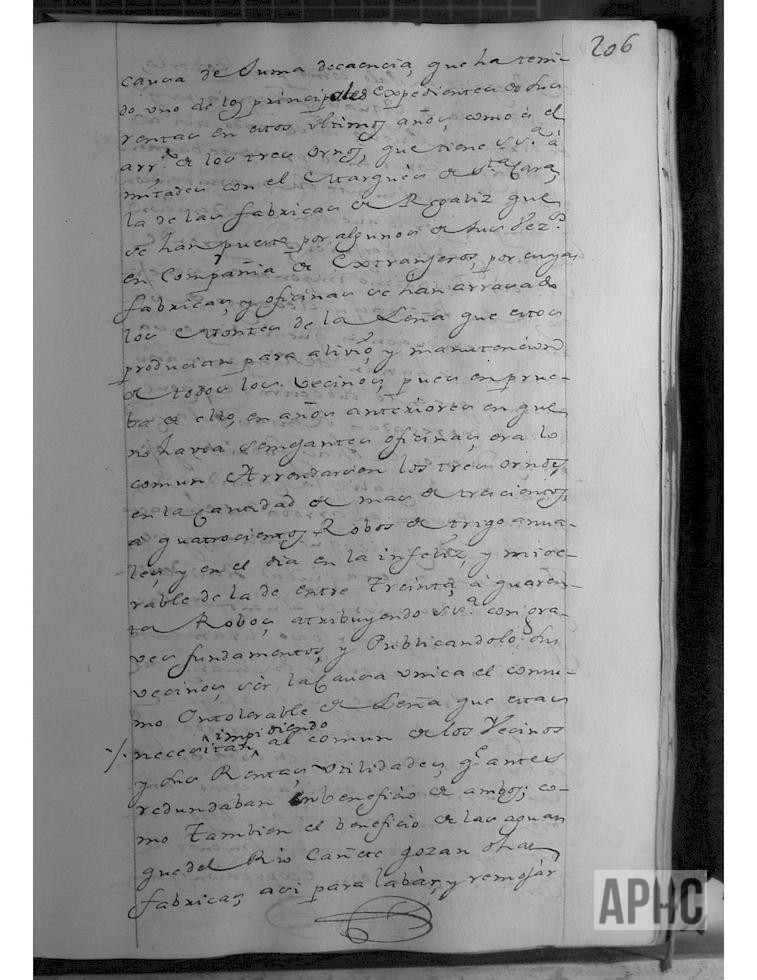 206
causa de suma decaencia, que ha teni-
do uno de los principales expedientes de sus
rentas en estos ultimos años, como es el
arr.to de los tres ornos, que tiene S.S.a à
mitades con el Marquès de S.ta Cara,
la de las fabricas de Regaliz que
se han puesto por algunos de sus Vez.s
en Compañia de Extranjeros, por cuyas
fabricas, y oficinas se han arrasado
los Montes de la Leña que estos
producian para alivio, y manutencion
de todos los vecinos, pues en prue-
ba de ello, en años anteriores en que
no havia semejantes oficinas, era lo
comun Arrendarsen los tres ornos,
en la Cantidad de mas de trescientos,
à quatrocientos Robos de trigo anua-
les, y en el dia en la infeliz, y mise-
rable de la de entre Treinta, à quaren-
ta Robos, atribuyendo S.S.a con gra-
ves fundamentos, y Publicandolo sus
vecinos, ser la Causa unica el consu-
mo Intolerable de Leña que estas
necesitan impidiendo al comun de los Vecinos
y sus Rentas, utilidades, q.e antes
redundaban en beneficio de ambos; co-
mo tambien el beneficio de las aguas
que del Rio Cañete gozan dhas
fabricas, asi para labàr, y remojàr
APHC